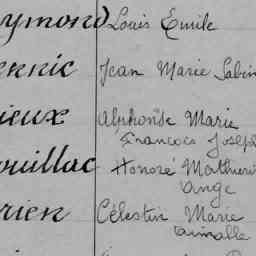 ymond Louis Emile
ennic Jean Marie Sabin
ieux Alphonse Marie
Francois Joseph
ouillac Honoré Mathurin
ange
rien Célestin Marie
aimable